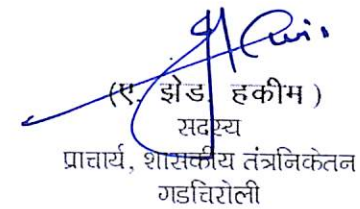 (ए. झेड. हकीम )
सदस्य
प्राचार्य, शासकीय तंत्रनिकेतन
गडचिरोली